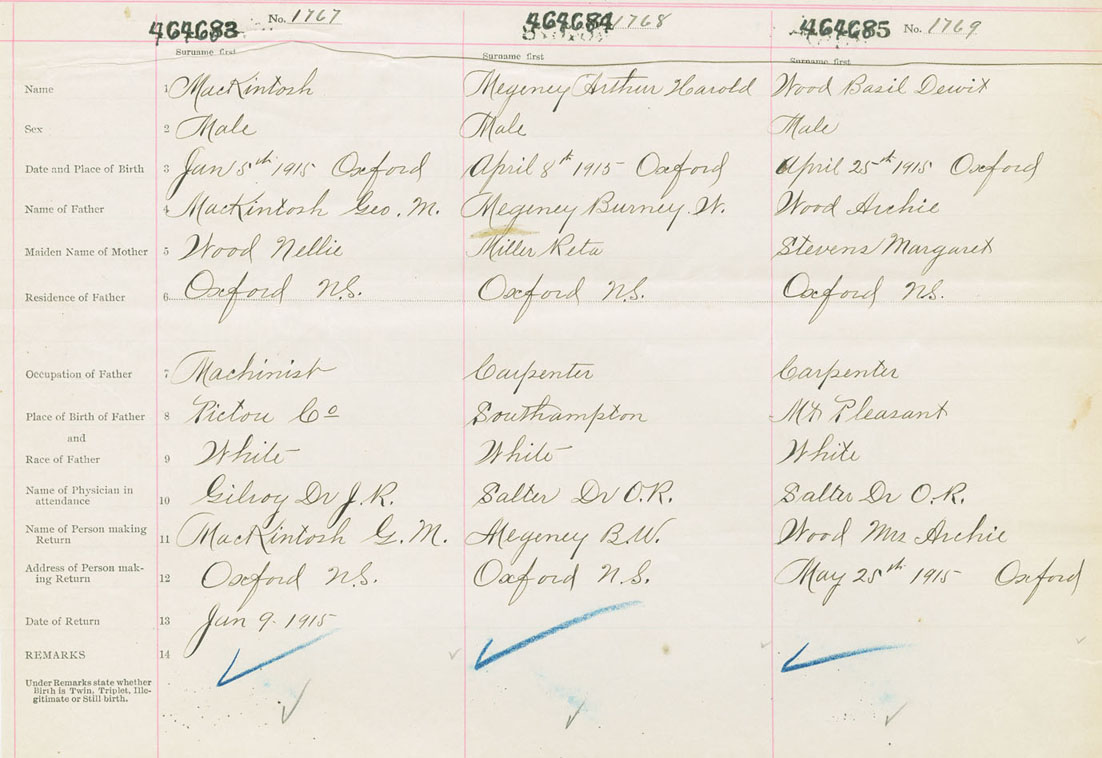 464683 No. 1767 464684 1768 464685 No. 1769
Surname first Surname first Surname first
Name 1 MacKintosh Megeney Arthur Harold Wood Basil Dewit
Sex 2 Male Male Male
Date and Place of Birth 3 Jan 5th 1915 Oxford April 8th 1915 Oxford April 25th 1915 Oxford
Name of Father 4 MacKintosh Geo. M. Megeney Burney W. Wood Archie
Maiden Name of Mother 5 Wood Nellie Miller Reta Stevens Margaret
Residence of Father 6 Oxford N.S. Oxford N.S. Oxford N.S.
Occupation of Father 7 Machinist Carpenter Carpenter
Place of Birth of Father 8 Pictou Co Southampton Mt Pleasant
and
Race of Father 9 White White White
Name of Physician in
attendance 10 Gilroy Dr J. R. Salter Dr O.R. Salter Dr O.R.
Name of Person making
Return 11 MacKintosh G. M. Megeney B.W. Wood Mrs Archie
Address of Person mak-
ing Return 12 Oxford N.S. Oxford N.S. May 25th 1915 Oxford
Date of Return 13 Jan 9. 1915
REMARKS 14
Under Remarks state whether
Birth is Twin, Triplet, Ille-
gitimate or Still birth.